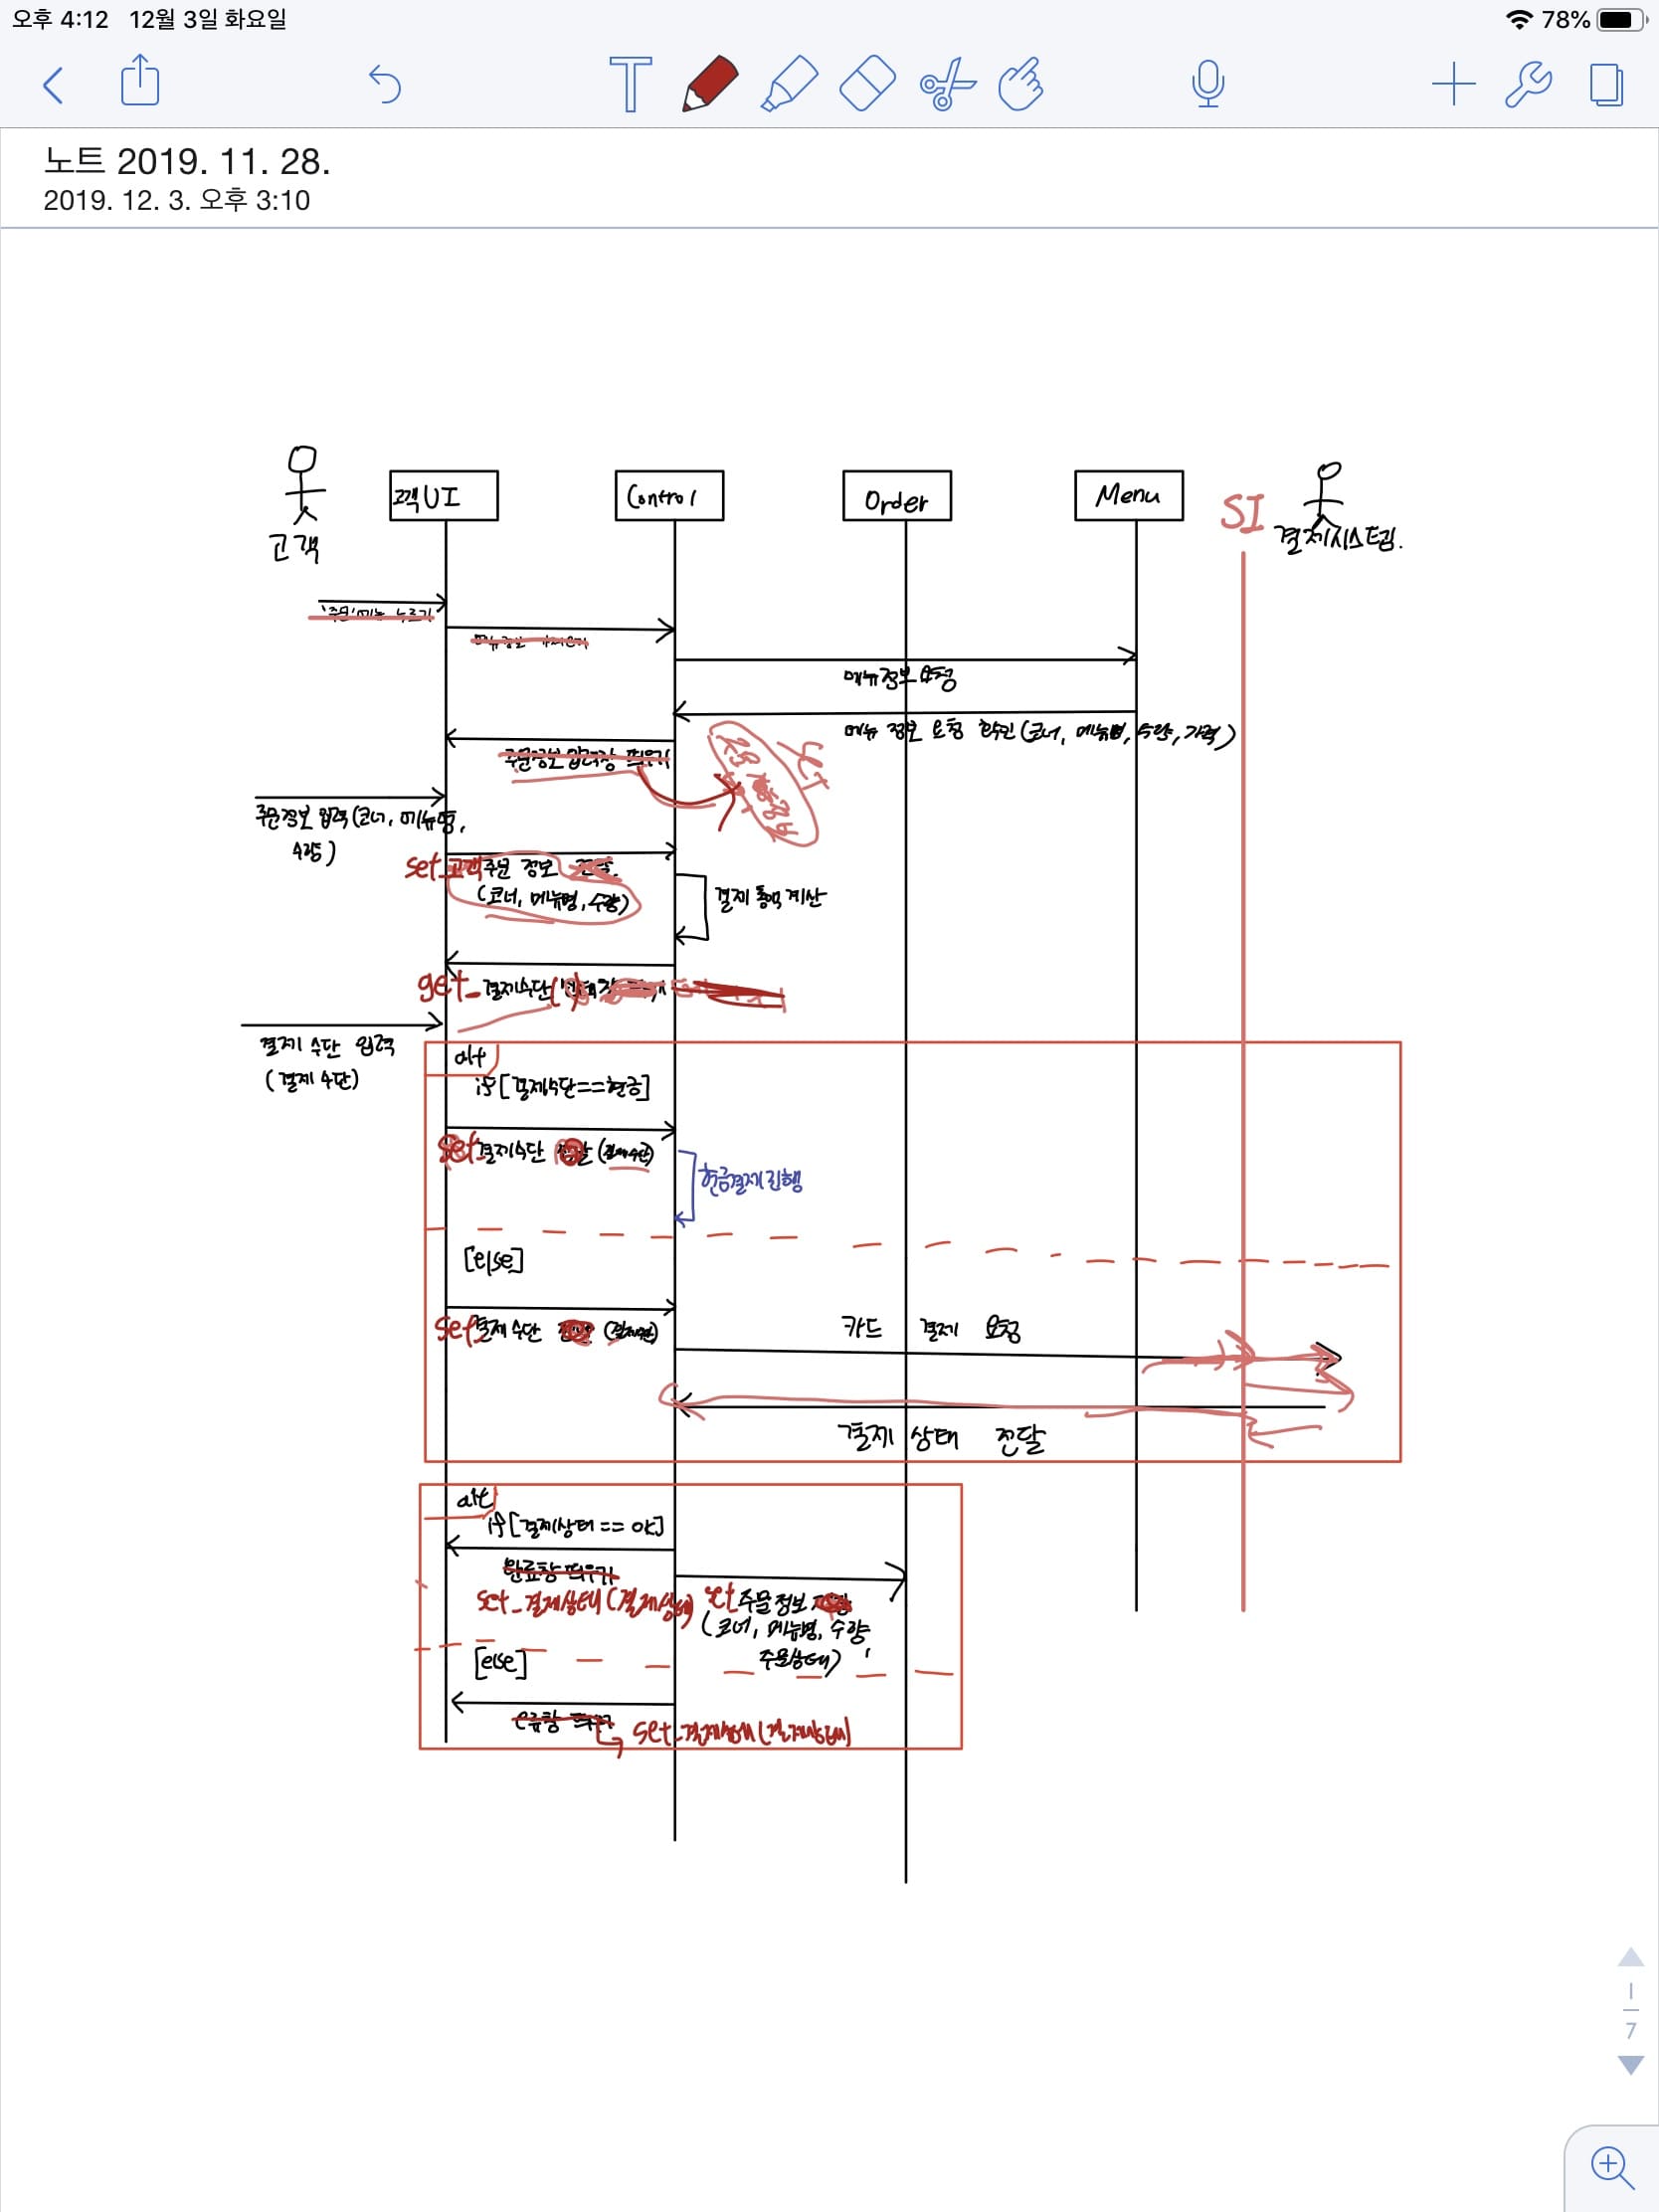 오후 4:12 12월 3일 화요일
78%
노트 2019. 11. 28.
2019. 12. 3. 오후 3:10
고객
고객 UI
Control
Order
Menu
SI
결제시스템.
메뉴정보 요청
메뉴 정보 요청 확인 (코너, 메뉴명, 수량, 가격)
주문정보 입력창 띄우기
주문정보 입력 (코너, 메뉴명,
수량)
set_고객주문 정보
(코너, 메뉴명, 수량)
결제 총액 계산
get_결제수단( )
결제 수단 입력
(결제 수단)
alt
if [결제수단==현금]
set_결제수단 (결제수단)
현금결제 진행
[else]
set_결제수단 (결제수단)
카드 결제 요청
결제 상태 전달
alt
if [결제상태 == ok]
완료창 띄우기
set_결제상태 (결제상태)
set 주문정보
(코너, 메뉴명, 수량,
주문상태)
[else]
오류창 띄우기
set_결제상태 (결제상태)
1
7